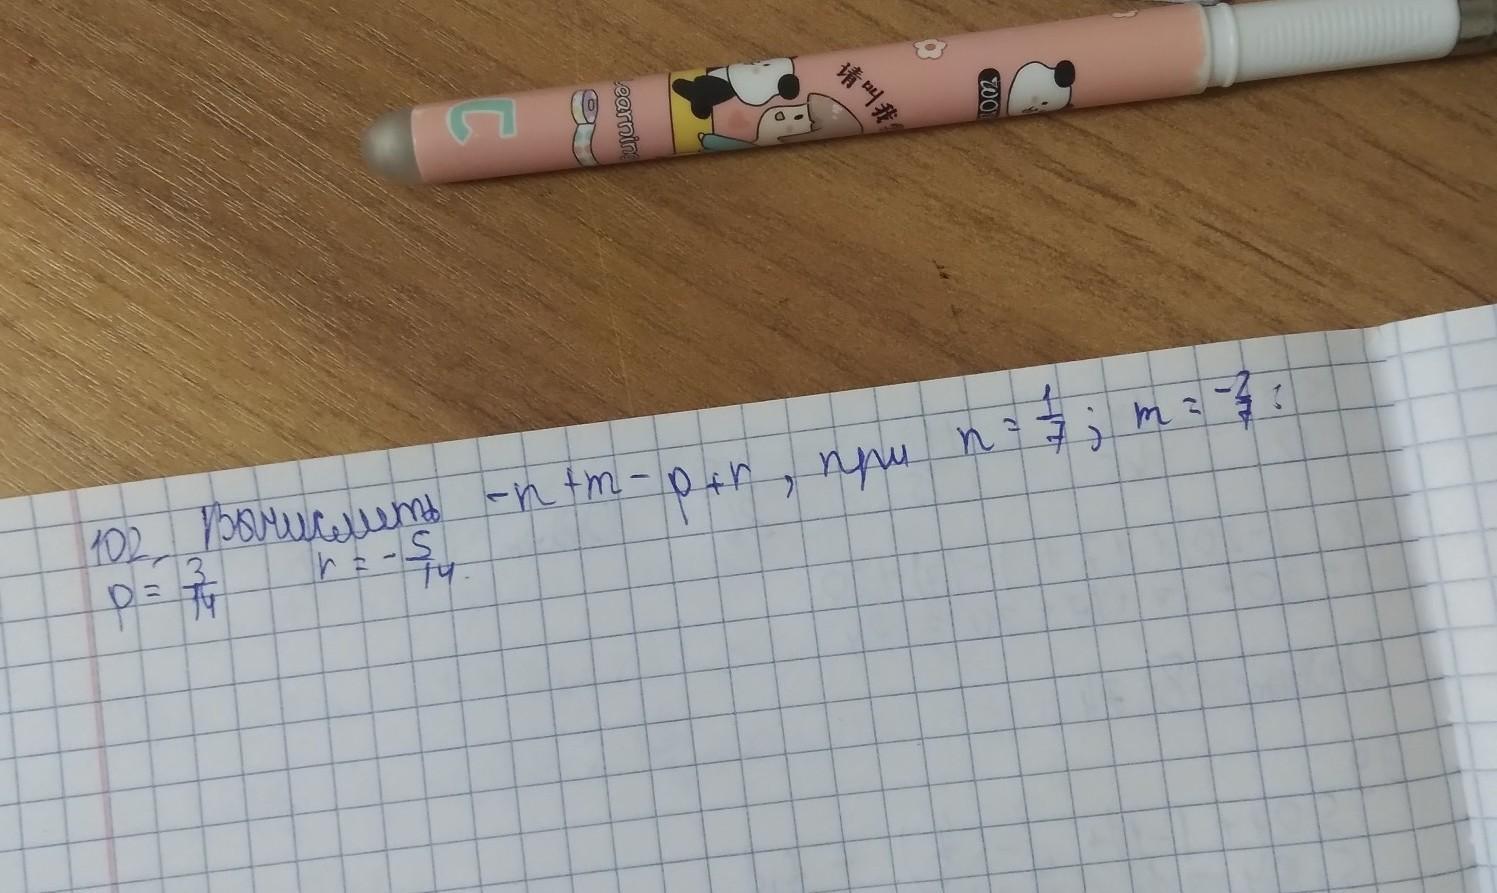 C
Learning
请叫我
ZOO
102. Вычислить -n+m-p+r, при n = 1/7; m = -2/7;
p = 3/14 r = -5/14.